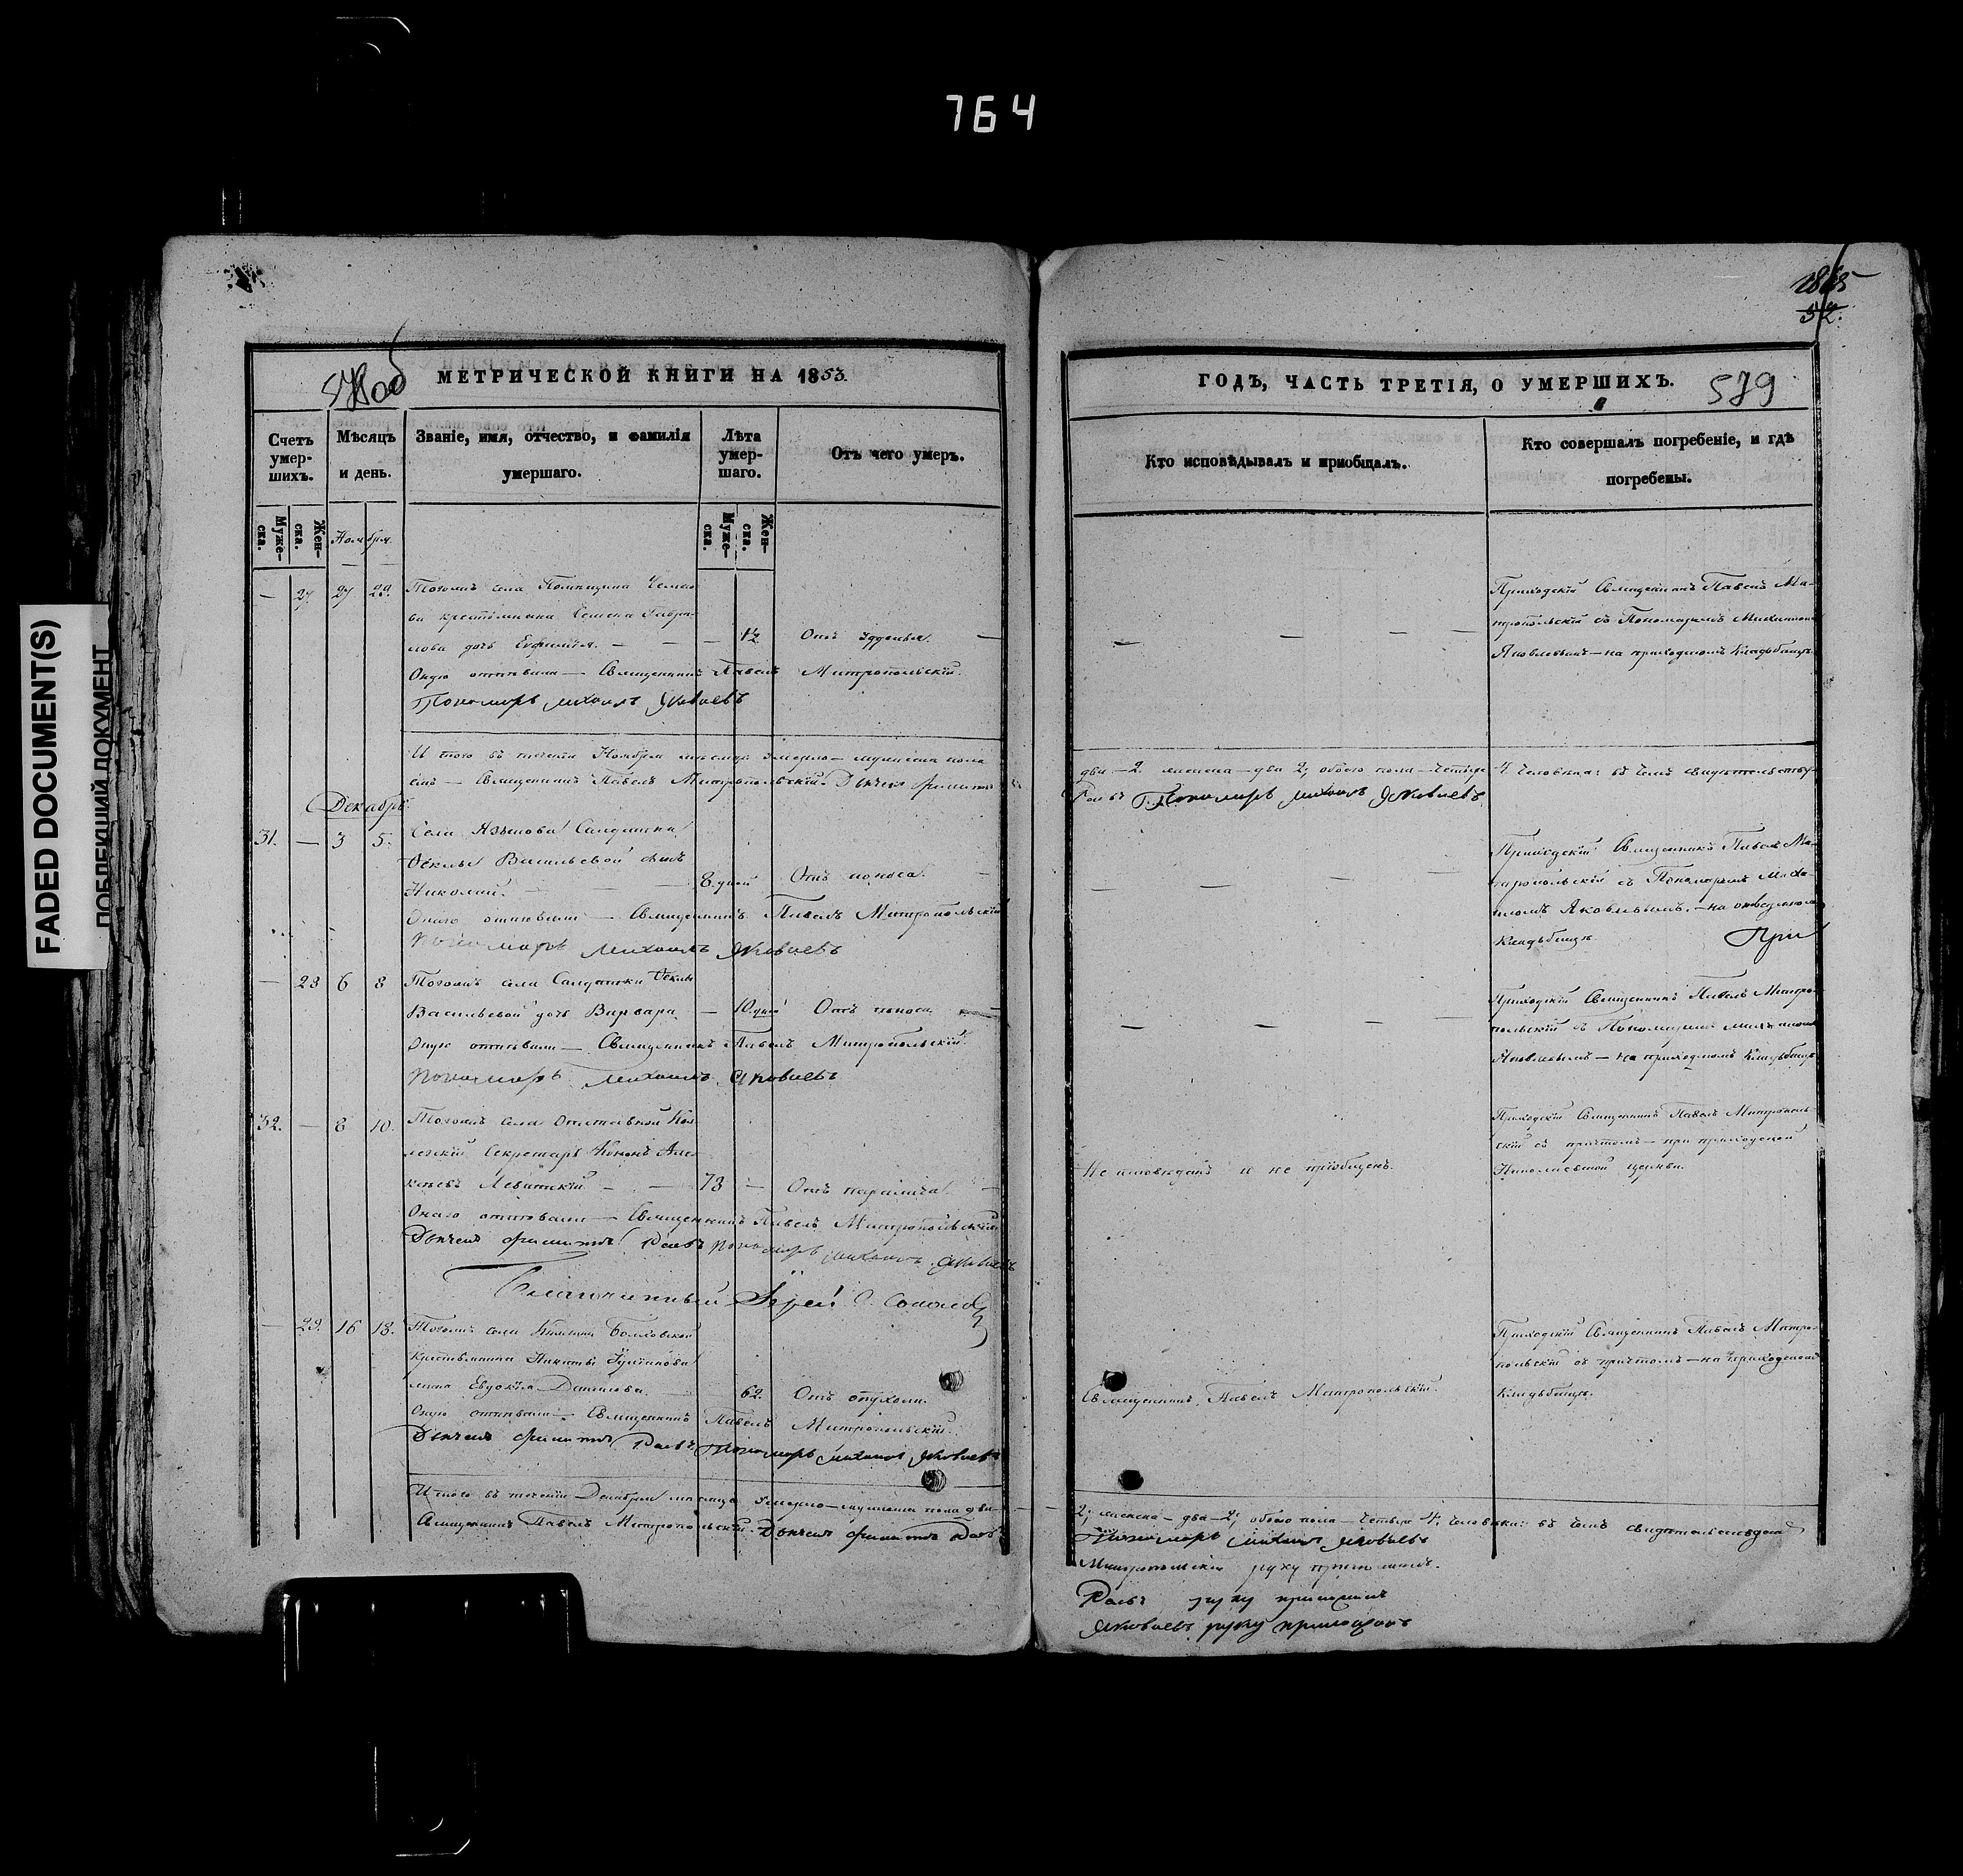 764
FADED DOCUMENT(S)
ПОБЛЕКШИЙ ДОКУМЕНТ
578 об
МЕТРИЧЕСКОЙ КНИГИ НА 1853.
Счетъ умер-
шихъ.
Мѣсяцъ
и день.
Званіе, имя, отчество, и фамилія
умершаго.
Лѣта
умер-
шаго.
Отъ чего умеръ.
Муже-
ска.
Жен-
ска.
Ноября
Муже-
ска.
Жен-
ска.
— 27 27 29. Тогожъ села Помѣщика
ва крестьянина Семена Гаври-
лова дочь Евфимія. — — — 12 Отъ удушья. —
Оную отпѣвали — Священникъ Павелъ Митропольскій.
Пономарь Михаилъ Яковлевъ
И того въ теченіи Ноября мѣсяца умерло — мужеска пола
Священникъ Павелъ Митропольскій. Дьячекъ
Декабрь.
31. — 3 5. Села Солдатки
Ѳеклы Васильевой сынъ
Николай. — — 8 дней Отъ поноса. —
Онаго отпѣвали — Священникъ Павелъ Митропольскій
Пономарь Михаилъ Яковлевъ
— 28 6 8 Тогожъ села Солдатки Ѳеклы
Васильевой дочь Варвара — 10 дней Отъ поноса —
Оную отпѣвали — Священникъ Павелъ Митропольскій.
Пономарь Михаилъ Яковлевъ
32. — 8 10. Тогожъ села Отставной Кол-
лежскій Секретарь Кононъ Але-
Левитскій — — 73 — Отъ паралича. —
Онаго отпѣвали — Священникъ Павелъ Митропольскій
Дьячекъ Пономарь Михаилъ Яковлевъ
Благочинный Іерей
— 29. 16 18. Тогожъ села
Крестьянина Никиты
жена Евдокія Данилова. — 62. Отъ опухоли.
Оную отпѣвали — Священникъ Павелъ Митропольскій.
Дьячекъ Пономарь Михаилъ Яковлевъ
И того въ теченіи Декабря мѣсяца умерло — мужеска пола два —
Священникъ Павелъ Митропольскій. Дьячекъ
579
ГОДЪ, ЧАСТЬ ТРЕТІЯ, О УМЕРШИХЪ.
Кто исповѣдывалъ и пріобщалъ.
Кто совершалъ погребеніе, и гдѣ
погребены.
Приходскій Священникъ Павелъ Ми-
тропольскій съ Пономаремъ Михаиломъ
Яковлевымъ — на приходскомъ кладбищѣ.
два — 2. женска — два 2; обоего пола — четыре 4 человѣка: въ чемъ свидѣтельству-
Пономарь Михаилъ Яковлевъ
Приходскій Священникъ Павелъ Ми-
тропольскій съ Пономаремъ Миха-
иломъ Яковлевымъ. — на отведенномъ
кладбищѣ. При
Приходскій Священникъ Павелъ Митро-
польскій съ Пономаремъ Михаиломъ
Яковлевымъ — на приходскомъ кладбищѣ
Не исповѣданъ и не пріобщенъ.
Приходскій Священникъ Павелъ Митрополь-
скій съ причтомъ — при приходской
Николаевской церкви.
Священникъ Павелъ Митропольскій.
Приходскій Священникъ Павелъ Митро-
польскій съ причтомъ — на приходскомъ
кладбищѣ.
2; женска — два — 2; обоего пола — четыре 4; человѣка: въ чемъ
Пономарь Михаилъ Яковлевъ
Митропольскій руку приложилъ.
руку приложилъ
Яковлевъ руку приложилъ